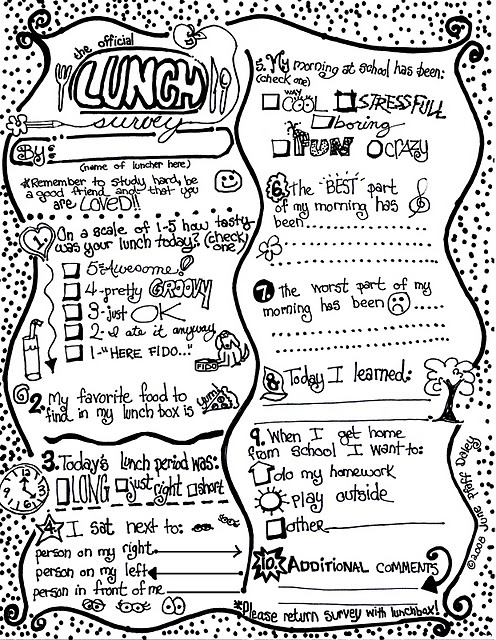 the official
LUNCH
survey
By:
(name of luncher here)
*Remember to study hard, be
a good friend and that you
are LOVED!!
1. On a scale of 1-5 how tasty
was your lunch today? (check one)
5-Awesome!
4-pretty GROOVY
3-just OK
2-I ate it anyway
1-"HERE FIDO..."
FIDO
2. My favorite food to
find in my lunch box is
yum!
3. Today's lunch period was:
LONG just right short
4. I sat next to:
person on my right
person on my left
person in front of me
5. My morning at school has been:
(check one)
WAY COOL STRESSFULL
boring
FUN CRAZY
6. The "BEST" part
of my morning has
been
7. The worst part of my
morning has been
8. Today I learned:
9. When I get home
from school I want to:
do my homework
play outside
other
10. ADDITIONAL COMMENTS
*Please return survey with lunchbox!
©2008 June Pfaff Daley